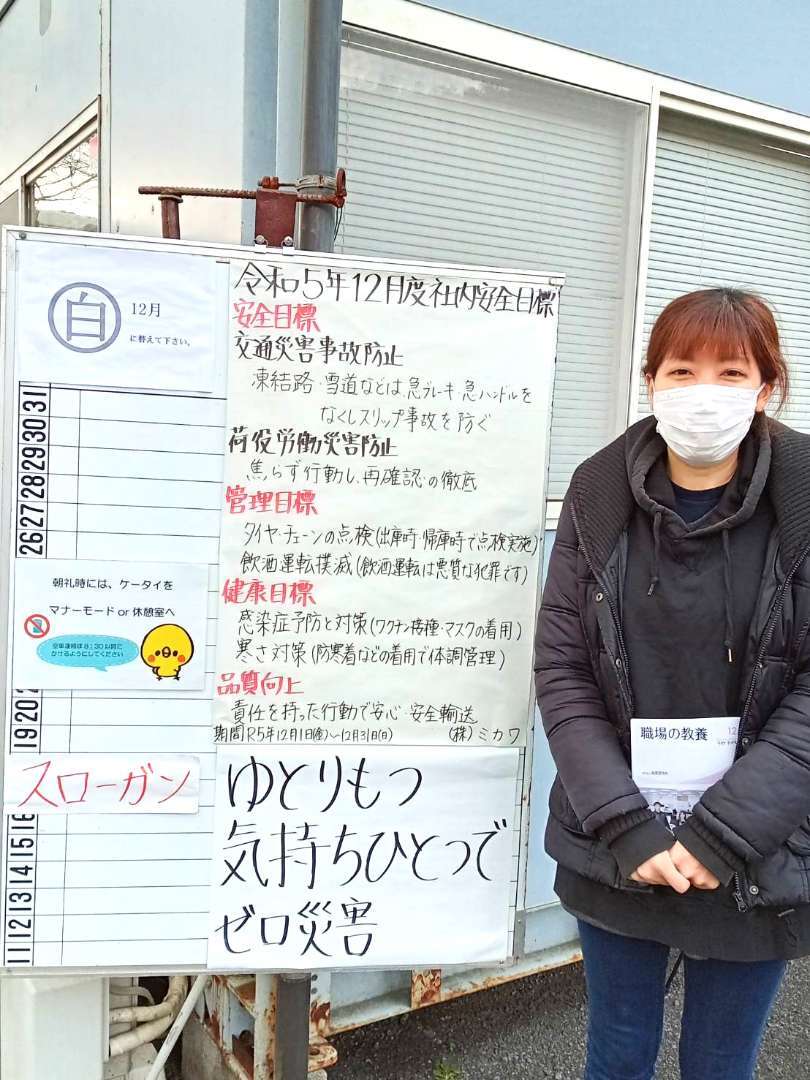 白
12月
に替えて下さい。
31
30
29
28
27
26
朝礼時には、ケータイを
マナーモード or 休憩室へ
空車連絡は8:30以前に
かけるようにしてください
20
19
スローガン
16
15
14
13
12
11
令和5年12月度社内安全目標
安全目標
交通災害事故防止
凍結路・雪道などは、急ブレーキ・急ハンドルを
なくしスリップ事故を防ぐ
荷役労働災害防止
焦らず行動し、再確認の徹底
管理目標
タイヤ・チェーンの点検(出庫時・帰庫時で点検実施)
飲酒運転撲滅(飲酒運転は悪質な犯罪です)
健康目標
感染症予防と対策(ワクチン接種・マスクの着用)
寒さ対策(防寒着などの着用で体調管理)
品質向上
責任を持った行動で安心・安全輸送
期間R5年12月1日(金)~12月31日(日) (株)ミカワ
ゆとりもつ
気持ちひとつで
ゼロ災害
職場の教養
12